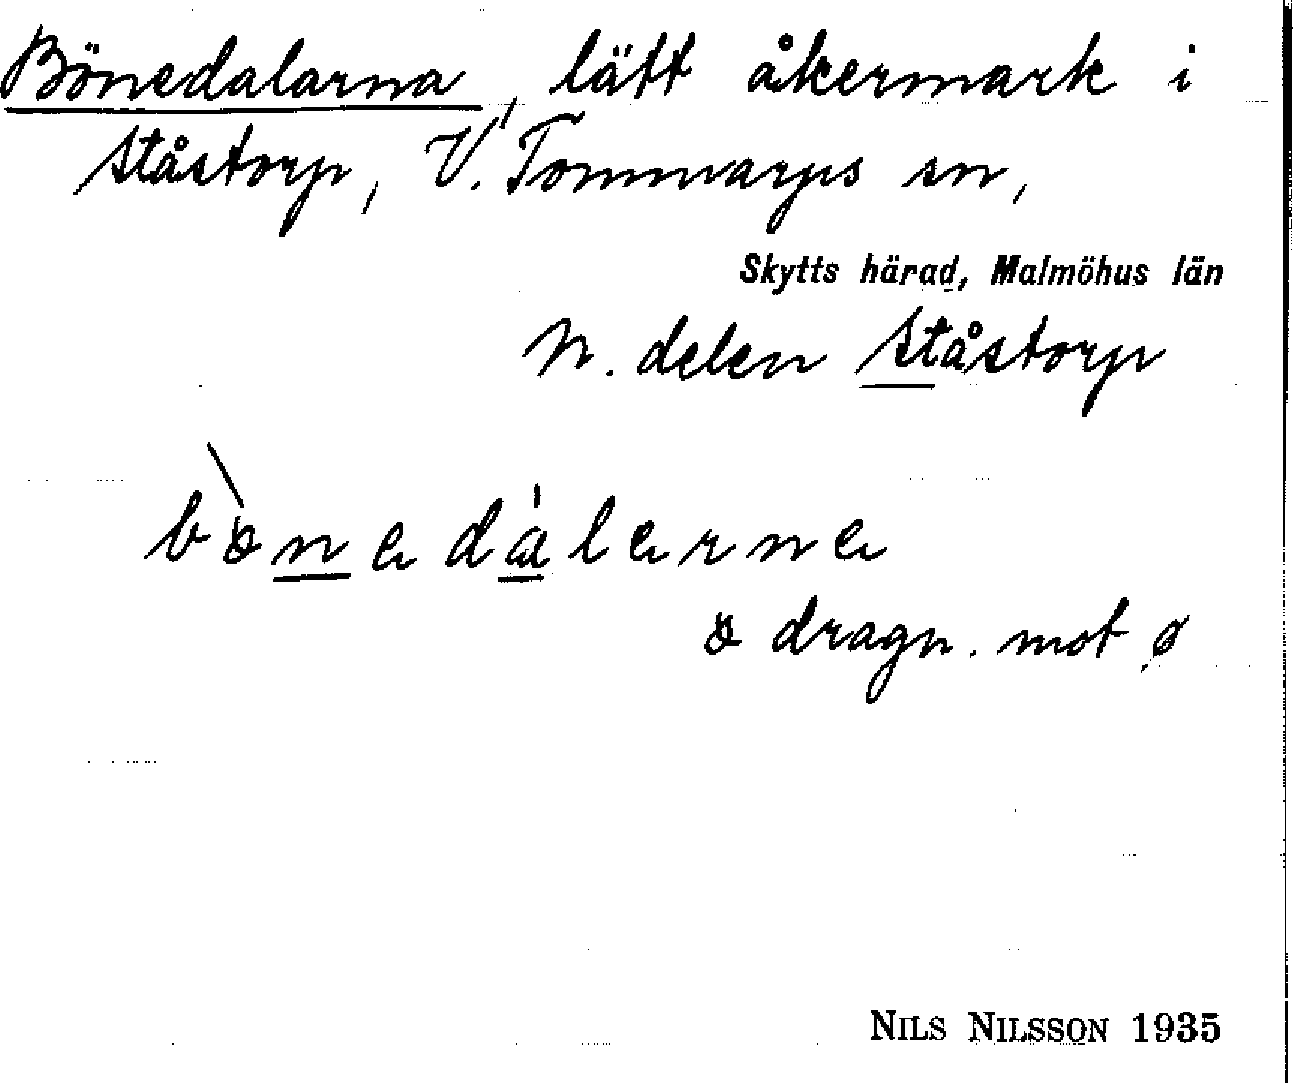 Bönedalarna, lätt åkermark i
Ståstorp, V. Tommarps sn,
Skytts härad, Malmöhus län
N. delen Ståstorp
bònedálerne
ö dragn. mot ø
NILS NILSSON 1935